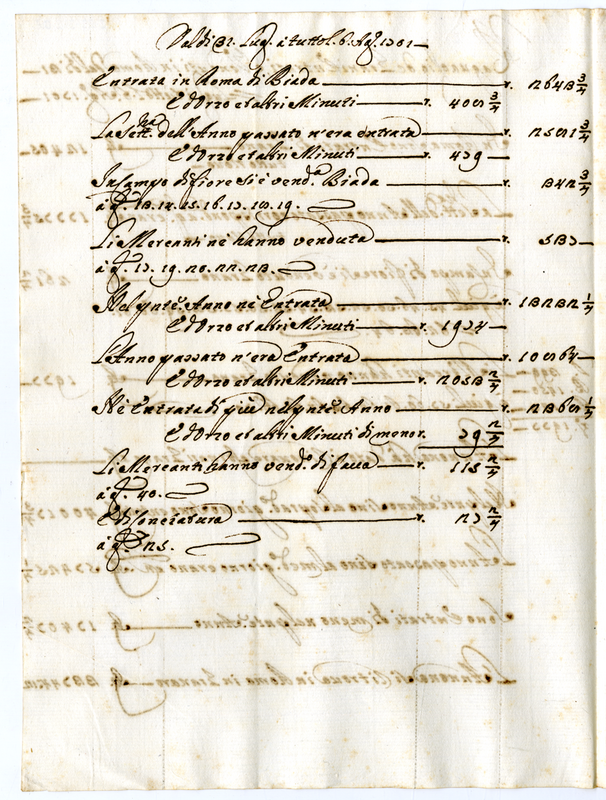 Dalli 31. Lug. à tutto li 6. Ag. 1701
Entrata in Roma di Biada r. 2643 3/4
Ed Orzo et altri Minuti r. 408 3/4
La Sett.na dell'Anno passato n'era entrata r. 2581 3/4
Ed Orzo et altri Minuti r. 479
In Campo di fiore si è vend.a Biada r. 342 3/4
à g. 13. 14. 15. 16. 17. 18. 19.
Li Mercanti nè hanno venduta r. 537
à g. 17. 19. 20. 22. 23.
Nel pnte. Anno nè Entrata r. 13232 1/4
Ed Orzo et altri Minuti r. 1974
L'Anno passato n'era Entrata r. 10864
Ed Orzo et altri Minuti r. 2053 2/4
Nè Entrata di più nel pnte. Anno r. 2368 1/4
Ed Orzo et altri Minuti di meno r. 79 2/4
Li Mercanti hanno vend. di r. 115 2/4
à g. 40.
E di Conciatura r. 27 2/4
à g. 25.